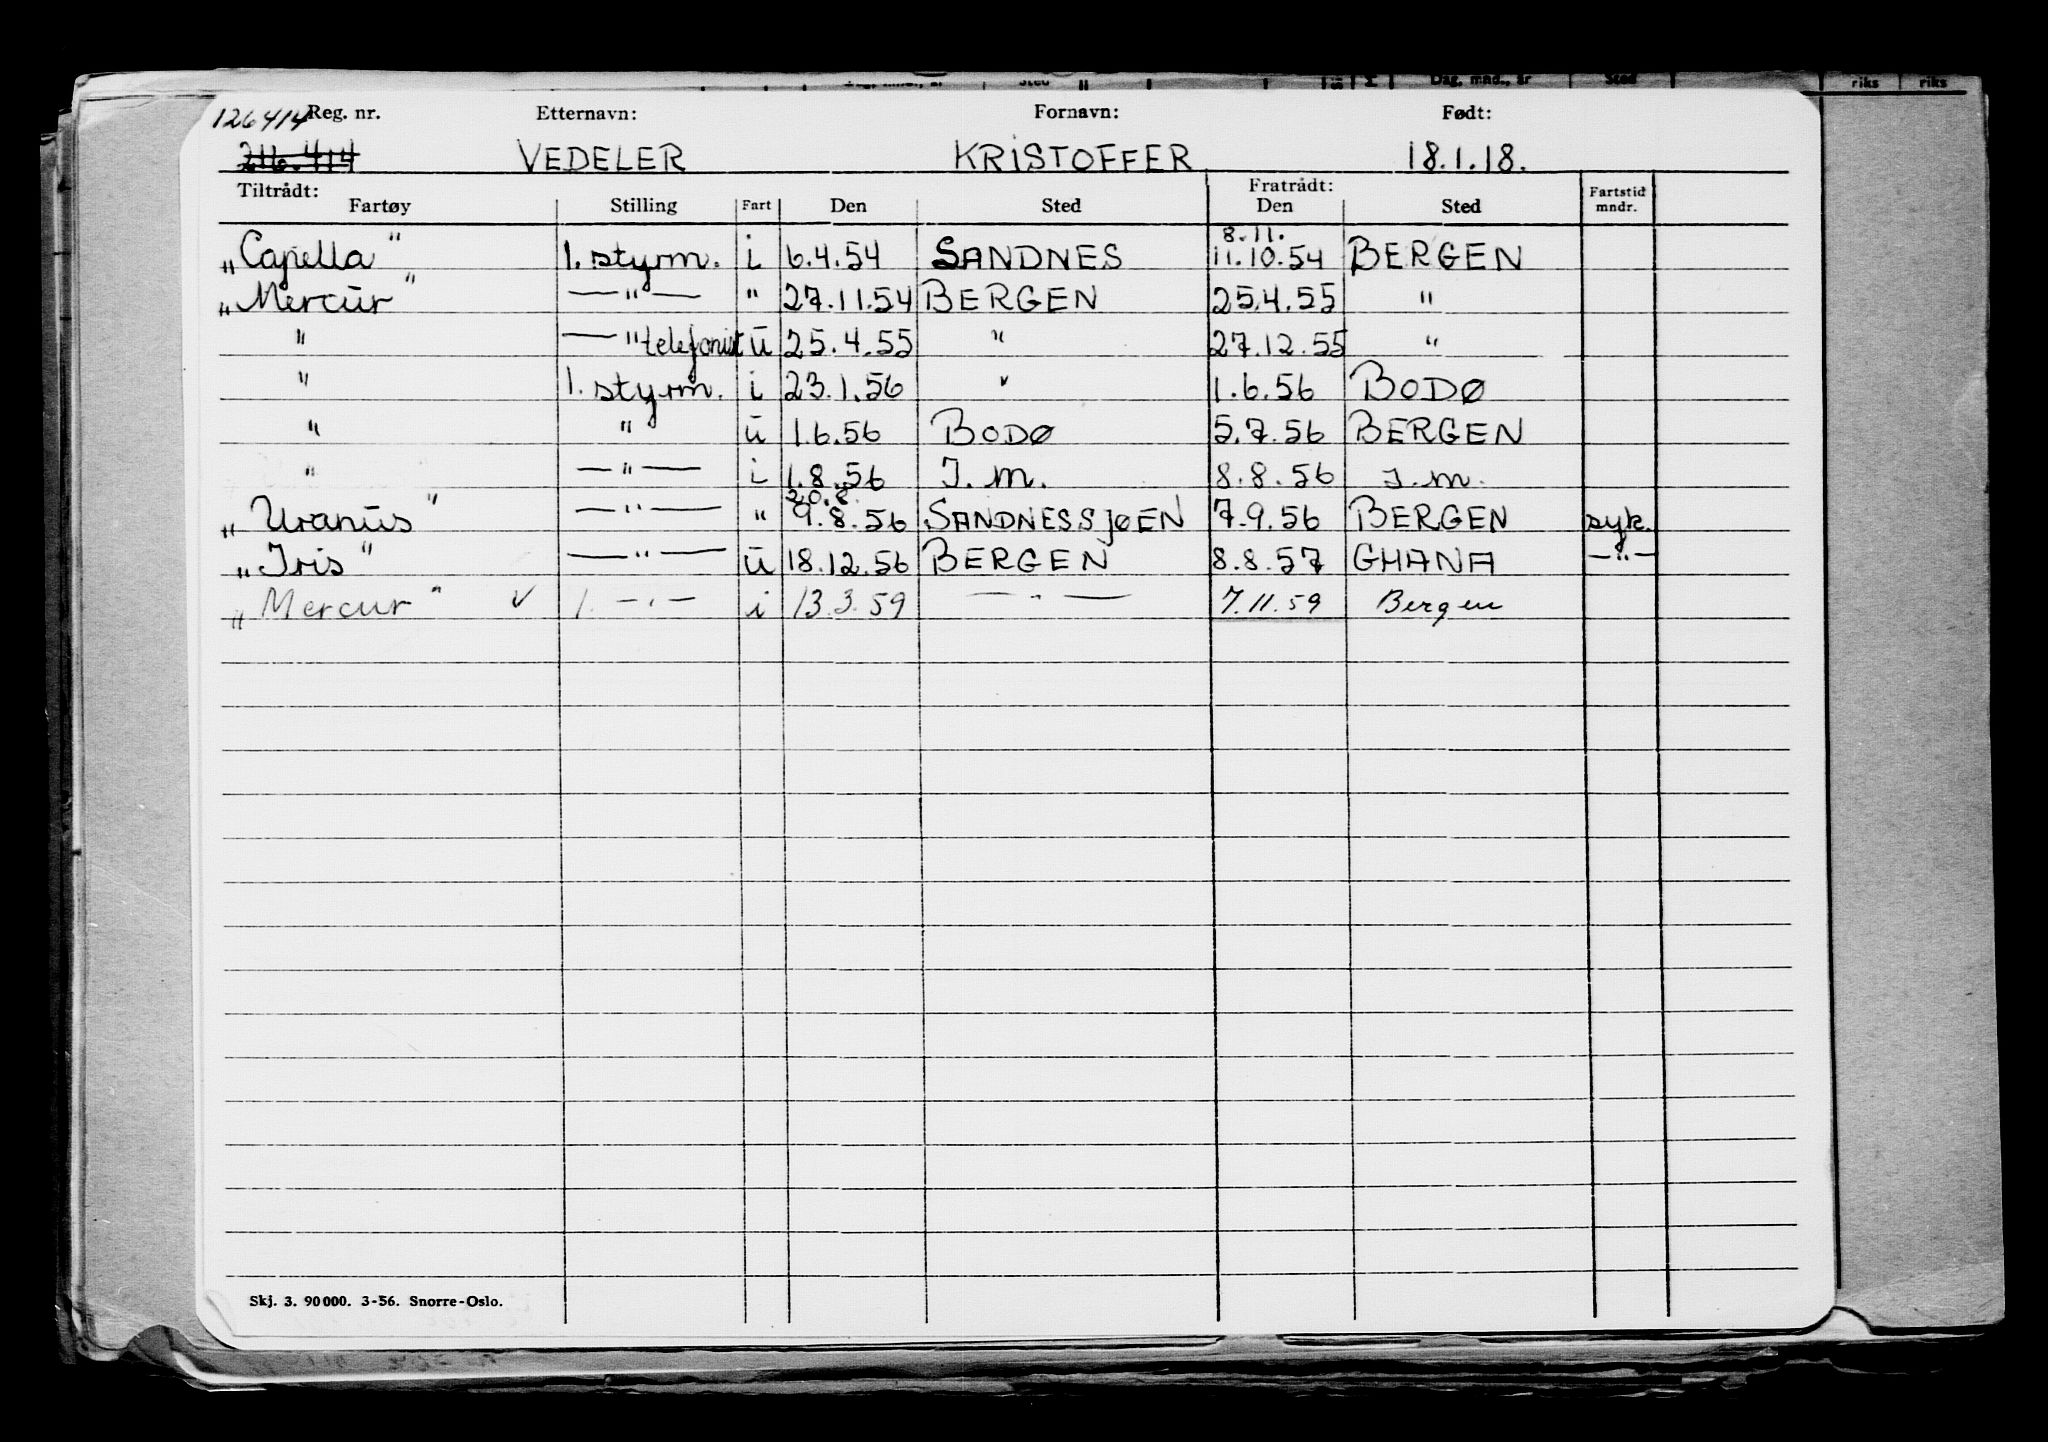 Dag, mnd., år Sted riks riks
126414 Reg. nr. Etternavn: Fornavn: Født:
216.414 VEDELER KRISTOFFER 18.1.18.
Tiltrådt: Fratrådt:
Fartøy Stilling Fart Den Sted Den Sted Fartstid mndr.
8.11.
„Capella" 1. styrm. i 6.4.54 SANDNES 11.10.54 BERGEN
„Mercur" —"— " 27.11.54 BERGEN 25.4.55 "
" —" telefonist u 25.4.55 " 27.12.55 "
" 1. styrm. i 23.1.56 " 1.6.56 BODØ
" " u 1.6.56 BODØ 5.7.56 BERGEN
" —"— i 1.8.56 I.m. 8.8.56 I.m.
20.8.
„Uranus" —"— " 9.8.56 SANDNESSJØEN 7.9.56 BERGEN syk.
„Iris" —"— u 18.12.56 BERGEN 8.8.57 GHANA —"—
„Mercur" ✓ 1. —"— i 13.3.59 —"— 7.11.59 Bergen
Skj. 3. 90000. 3-56. Snorre-Oslo.